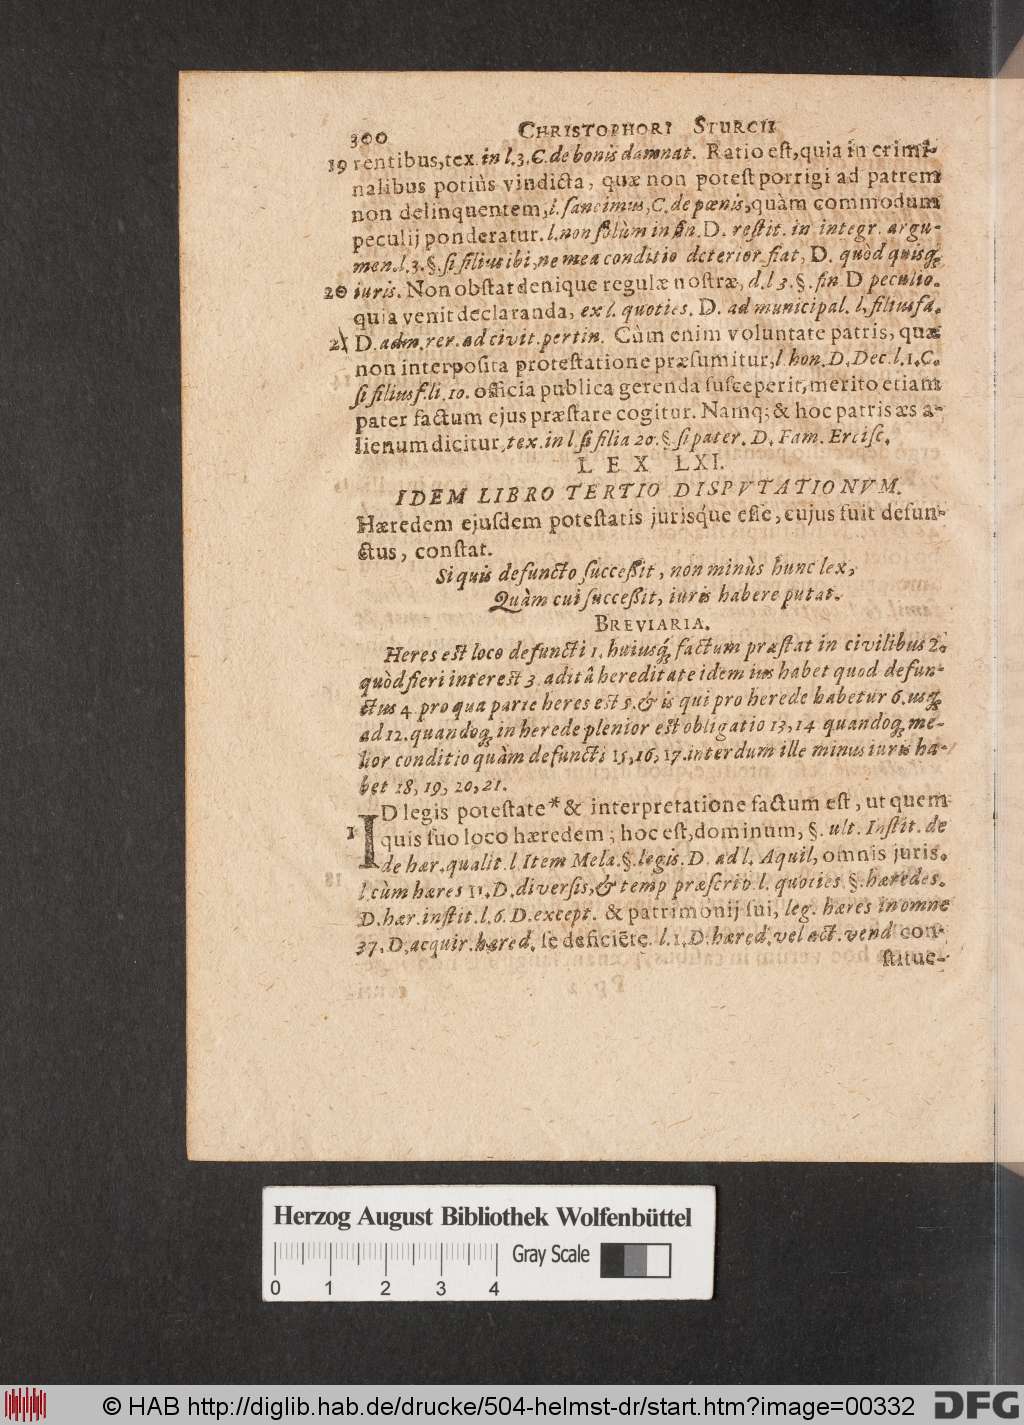 300 CHRISTOPHORI STURCII
19 rentibus, tex. in l. 3. C. de bonis damnat. Ratio est, quia in crimi-
nalibus potiùs vindicta, quæ non potest porrigi ad patrem
non delinquentem, l. sancimus, C. de pœnis, quàm commodum
peculij ponderatur. l. non solùm in fin. D. restit. in integr. argu-
men. l. 3. §. si filius ibi, ne mea conditio deterior fiat, D. quòd quisq;
20 iuris. Non obstat denique regulæ nostræ, d. l 3. §. fin D peculio.
quia venit declaranda, ex l. quoties. D. ad municipal. l. filiusfa.
21 D. adm. rer. ad civit. pertin. Cùm enim voluntate patris, quæ
non interposita protestatione præsumitur, l. hon. D. Dec. l. 1. C.
si filiusf. li. 10. officia publica gerenda susceperit, merito etiam
pater factum ejus præstare cogitur. Namq; & hoc patris æs a-
lienum dicitur, tex. in l si filia 20. §. si pater. D. Fam. Ercisc.
LEX LXI.
IDEM LIBRO TERTIO DISPVTATIONVM.
Hæredem ejusdem potestatis jurisq́ue esse, cujus fuit defun-
ctus, constat.
Si quis defuncto successit, non minùs hunc lex,
Quàm cui successit, iuris habere putat.
BREVIARIA.
Heres est loco defuncti 1. huiusq́; factum præstat in civilibus 2.
quòd fieri interest 3 aditâ hereditate idem ius habet quod defun-
ctus 4 pro qua parte heres est 5. & is qui pro herede habetur 6. usq;
ad 12. quandoq; in herede plenior est obligatio 13, 14 quandoq; me-
lior conditio quàm defuncti 15, 16, 17. interdum ille minus iuris ha-
bet 18, 19, 20, 21.
ID legis potestate* & interpretatione factum est, ut quem
1 quis suo loco hæredem; hoc est, dominum, §. ult. Instit. de
de hær. qualit. l. Item Mela. §. legis. D. ad l. Aquil, omnis juris.
l. cùm hæres 11. D. diversis, & temp præscrip. l. quoties §. hæredes.
D. hær. instit. l. 6. D. except. & patrimonij sui, leg. hæres in omne
37. D. acquir. hæred. se deficiẽte. l. 1. D. hæred. vel act. vend con-
stitue-
Herzog August Bibliothek Wolfenbüttel
Gray Scale
0 1 2 3 4
© HAB http://diglib.hab.de/drucke/504-helmst-dr/start.htm?image=00332
DFG